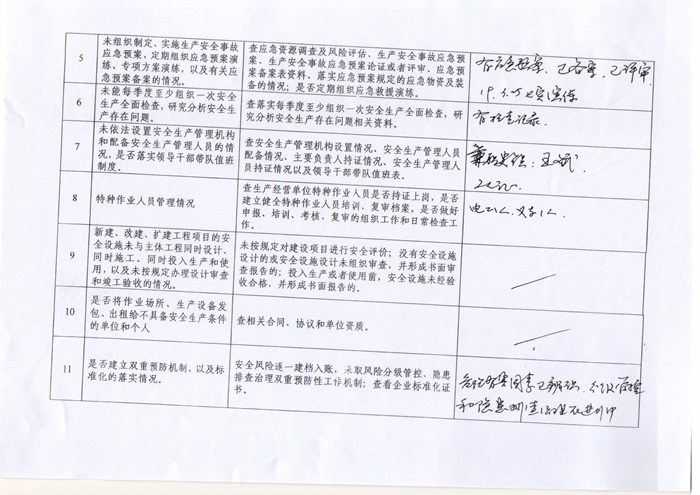 5
未组织制定、实施生产安全事故
应急预案,定期组织应急预案演
练、专项方案演练,以及有关应
急预案备案的情况。
查应急资源调查及风险评估、生产安全事故应急预
案、生产安全事故应急预案论证或者评审、应急预
案备案表资料、落实应急预案规定的应急物资及装
备的情况;是否定期组织应急救援演练。
有应急预案、已备案、已评审
6
未能每季度至少组织一次安全
生产全面检查,研究分析安全生
产存在问题。
查落实每季度至少组织一次安全生产全面检查,研
究分析安全生产存在问题相关资料。
有检查记录.
7
未依法设置安全生产管理机构
和配备安全生产管理人员的情
况,是否落实领导干部带队值班
制度。
查安全生产管理机构设置情况、安全生产管理人员
配备情况、主要负责人持证情况、安全生产管理人
员持证情况以及领导干部带队值班表。
8
特种作业人员管理情况
查生产经营单位特种作业人员是否持证上岗,是否
建立健全特种作业人员培训、复审档案,是否做好
申报、培训、考核、复审的组织工作和日常检查工
作。
电工1人、叉车1人
9
新建、改建、扩建工程项目的安
全设施未与主体工程同时设计、
同时施工、同时投入生产和使
用,以及未按规定办理设计审查
和竣工验收的情况。
未按规定对建设项目进行安全评价;没有安全设施
设计的或安全设施设计未组织审查,并形成书面审
查报告的;投入生产或者使用前,安全设施未经验
收合格,并形成书面报告的。
10
是否将作业场所、生产设备发
包、出租给不具备安全生产条件
的单位和个人
查相关合同、协议和单位资质。
11
是否建立双重预防机制,以及标
准化的落实情况。
安全风险逐一建档入账,采取风险分级管控、隐患
排查治理双重预防性工作机制;查看企业标准化证
书。
和隐患排查治理在进行中